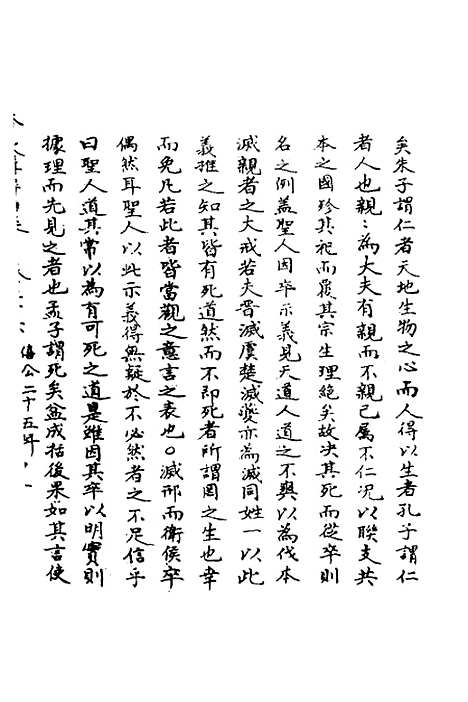 矣朱子謂仁者天地生物之心而人得以生者孔子謂仁
者人也親〻為大夫有親而不親已属不仁况以聯支共
本之國殄其祀而覆其宗生理絕矣故决其死而從卒則
名之例盖聖人因卒示義見天道人道之不與以為伐本
滅親者之大戒若夫晋滅虞楚滅夔亦為滅同姓一以此
義推之知其皆有死道然而不即死者所謂罔之生也幸
而免凡若此者皆當觀之意言之表也〇滅邢而衛侯卒
偶然耳聖人以此示義得無疑於不必然者之不足信乎
曰聖人道其常以為有可死之道是雖因其卒以明實則
據理而先見之者也孟子謂死矣盆成括後果如其言使
僖公二十五年